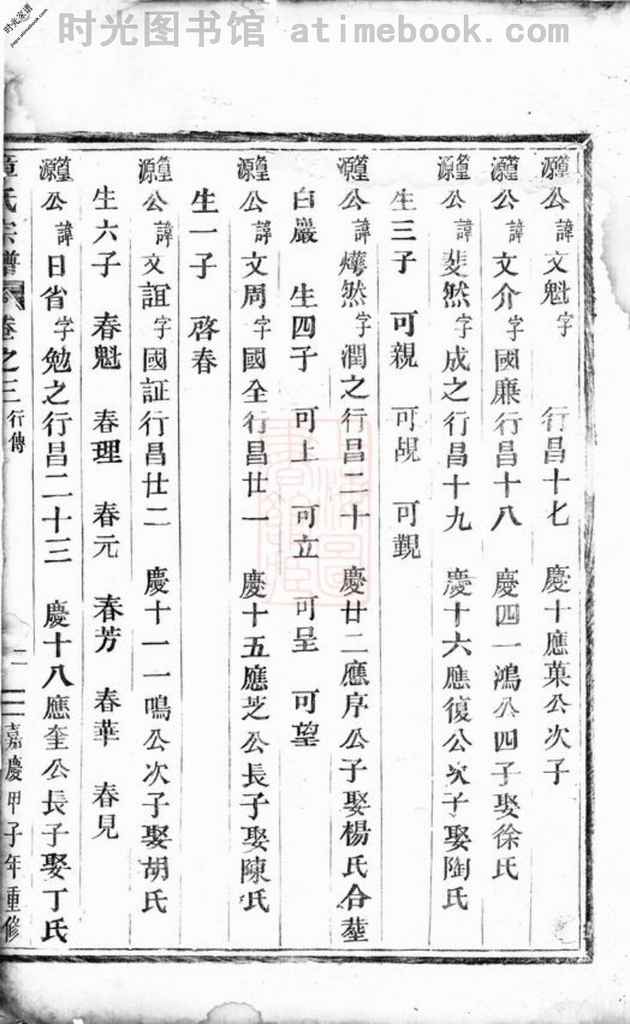 时光图书馆 atimebook.com
时光家谱
篁源公諱文魁字 行昌十七 慶十應菓公次子
篁源公諱文介字國廉行昌十八 慶四一鴻公四子娶徐氏
篁源公諱斐然字成之行昌十九 慶十六應復公次子娶陶氏
生三子 可親 可覘 可觀
篁源公諱燁然字潤之行昌二十 慶廿二應序公子娶楊氏合塟
白巖 生四子 可上 可立 可呈 可望
篁源公諱文周字國全行昌廿一 慶十五應芝公長子娶陳氏
生一子 啓春
篁源公諱文誼字國証行昌廿二 慶十一一鳴公次子娶胡氏
生六子 春魁 春理 春元 春芳 春華 春見
篁源公諱日省字勉之行昌二十三 慶十八應奎公長子娶丁氏
氏宗譜 卷之三 行傳 二 嘉慶甲子年重修